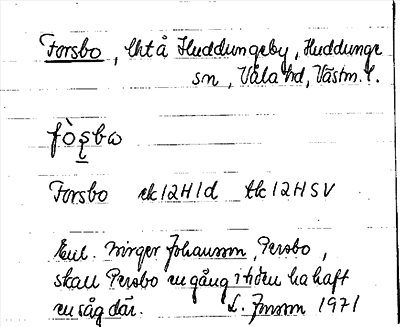 Forsbo, lht å Huddungeby, Huddunge
sn, Våla hd, Västm. l.
fò̀ʂbω
Forsbo ek 12H1d tk 12HSV
Enl. Birger Johansson, Persbo,
skall Persbo en gång i tiden ha haft
en såg där. L. Jonsson 1971